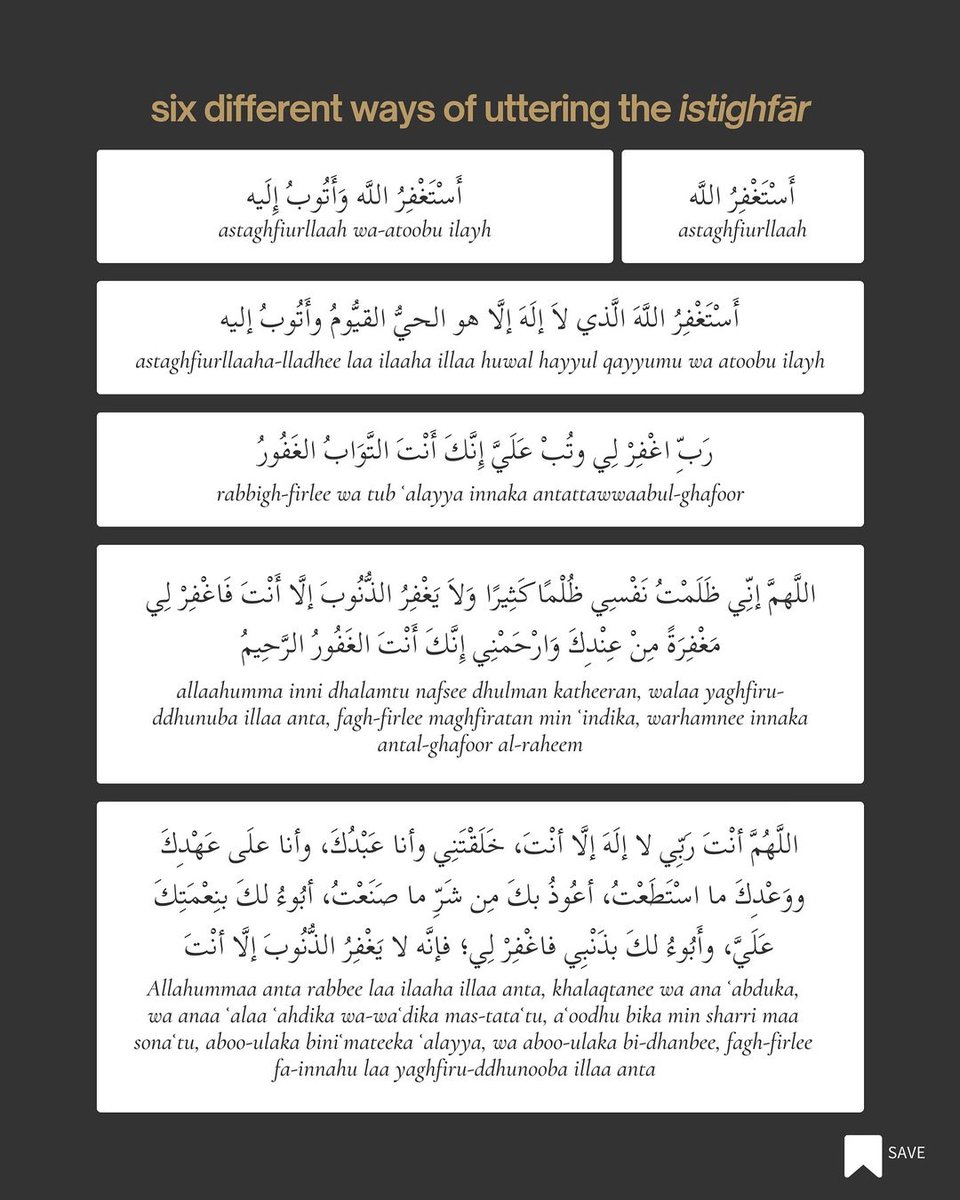 six different ways of uttering the istighfār
أَسْتَغْفِرُ اللَّه
astaghfiurllaah
أَسْتَغْفِرُ اللَّه وَأَتُوبُ إِلَيه
astaghfiurllaah wa-atoobu ilayh
أَسْتَغْفِرُ اللَّهَ الَّذي لاَ إلَهَ إلَّا هو الحيُّ القيُّومُ وأَتُوبُ إليه
astaghfiurllaaha-lladhee laa ilaaha illaa huwal hayyul qayyumu wa atoobu ilayh
رَبِّ اغْفِرْ لِي وتُبْ عَلَيَّ إِنَّكَ أَنْتَ التَّوَابُ الغَفُورُ
rabbigh-firlee wa tub ʿalayya innaka antattawwaabul-ghafoor
اللَّهمَّ إنِّي ظَلَمْتُ نَفْسِي ظُلْمًا كَثِيرًا وَلاَ يَغْفِرُ الذُّنُوبَ إلَّا أَنْتَ فَاغْفِرْ لِي
مَغْفِرَةً مِنْ عِنْدِكَ وَارْحَمْنِي إِنَّكَ أَنْتَ الغَفُورُ الرَّحِيمُ
allaahumma inni dhalamtu nafsee dhulman katheeran, walaa yaghfiru-
ddhunuba illaa anta, fagh-firlee maghfiratan min ʿindika, warhamnee innaka
antal-ghafoor al-raheem
اللَّهُمَّ أنْتَ رَبِّي لا إلَهَ إلَّا أنْتَ، خَلَقْتَنِي وأنا عَبْدُكَ، وأنا علَى عَهْدِكَ
ووَعْدِكَ ما اسْتَطَعْتُ، أعُوذُ بكَ مِن شَرِّ ما صَنَعْتُ، أبُوءُ لكَ بنِعْمَتِكَ
عَلَيَّ، وأَبُوءُ لكَ بذَنْبِي فاغْفِرْ لِي؛ فإنَّه لا يَغْفِرُ الذُّنُوبَ إلَّا أنْتَ
Allahummaa anta rabbee laa ilaaha illaa anta, khalaqtanee wa ana ʿabduka,
wa anaa ʿalaa ʿahdika wa-waʿdika mas-tataʿtu, aʿoodhu bika min sharri maa
sonaʿtu, aboo-ulaka biniʿmateeka ʿalayya, wa aboo-ulaka bi-dhanbee, fagh-firlee
fa-innahu laa yaghfiru-ddhunooba illaa anta
SAVE